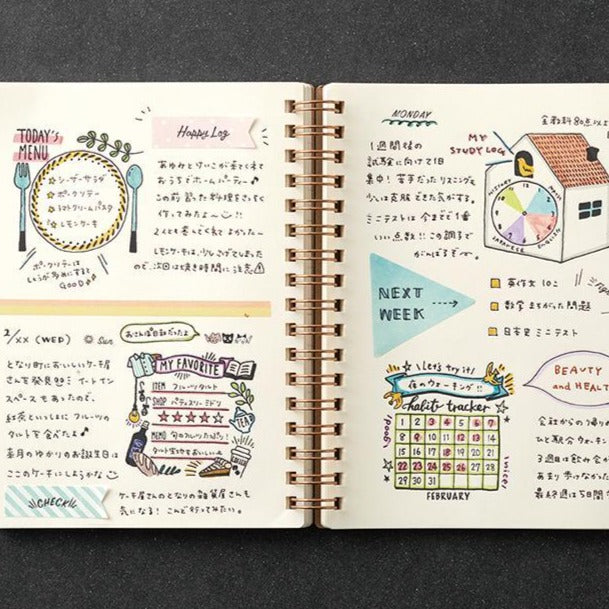 TODAY's
MENU
シーザーサラダ
ポークソテー
トマトクリームパスタ
レモンケーキ
ポークソテーは
しょうが多めにすると
GOOD♪
Happy Log
あゆみとけいこが来てくれて
おうちでホームパーティー♪
この前 習った料理をさっそく
作ってみたよ〜!!
2人とも喜んでくれてよかった〜
レモンケーキは、少しこげてしまった
ので、次回は焼き時間に注意
2/XX (WED)
Sun
おさんぽ日和だったよ
となり町においしいケーキ屋
さんを発見!! イートイン
スペースもあったので、
紅茶といっしょにフルーツの
タルトを食べたよ♪
来月のゆかりのお誕生日は
ここのケーキにしようかな
MY FAVORITE
ITEM フルーツタルト
SHOP パティスリーミドリ
★★★★★
MEMO 旬のフルーツたっぷり
タルト生地もおいしいよ
TEA
CHECK!!
ケーキ屋さんのとなりの雑貨屋さんも
気になる! こんど行ってみたい。
MONDAY
全教科80点以上
MY
STUDY LOG
1週間後の
試験に向けて1日
集中! 苦手だったリスニングも
少しは克服できた気がする。
ミニテストは今までで1番
いい点数!! この調子で
がんばるぞ〜。
HISTORY
MATH
JAPANESE
ENGLISH
NEXT
WEEK
英作文 10こ
数学 まちがった問題
日本史 ミニテスト
Let's try it!
夜のウォーキング!!
habit tracker
good!
nice!
1 2 3 4 5 6 7
8 9 10 11 12 13 14
15 16 17 18 19 20 21
22 23 24 25 26 27 28
29 30 31
FEBRUARY
BEAUTY
and HEALT
会社からの帰り
ひと駅分ウォーキン
3週目は飲み会が
あまり歩けなかった
最終週は5日間